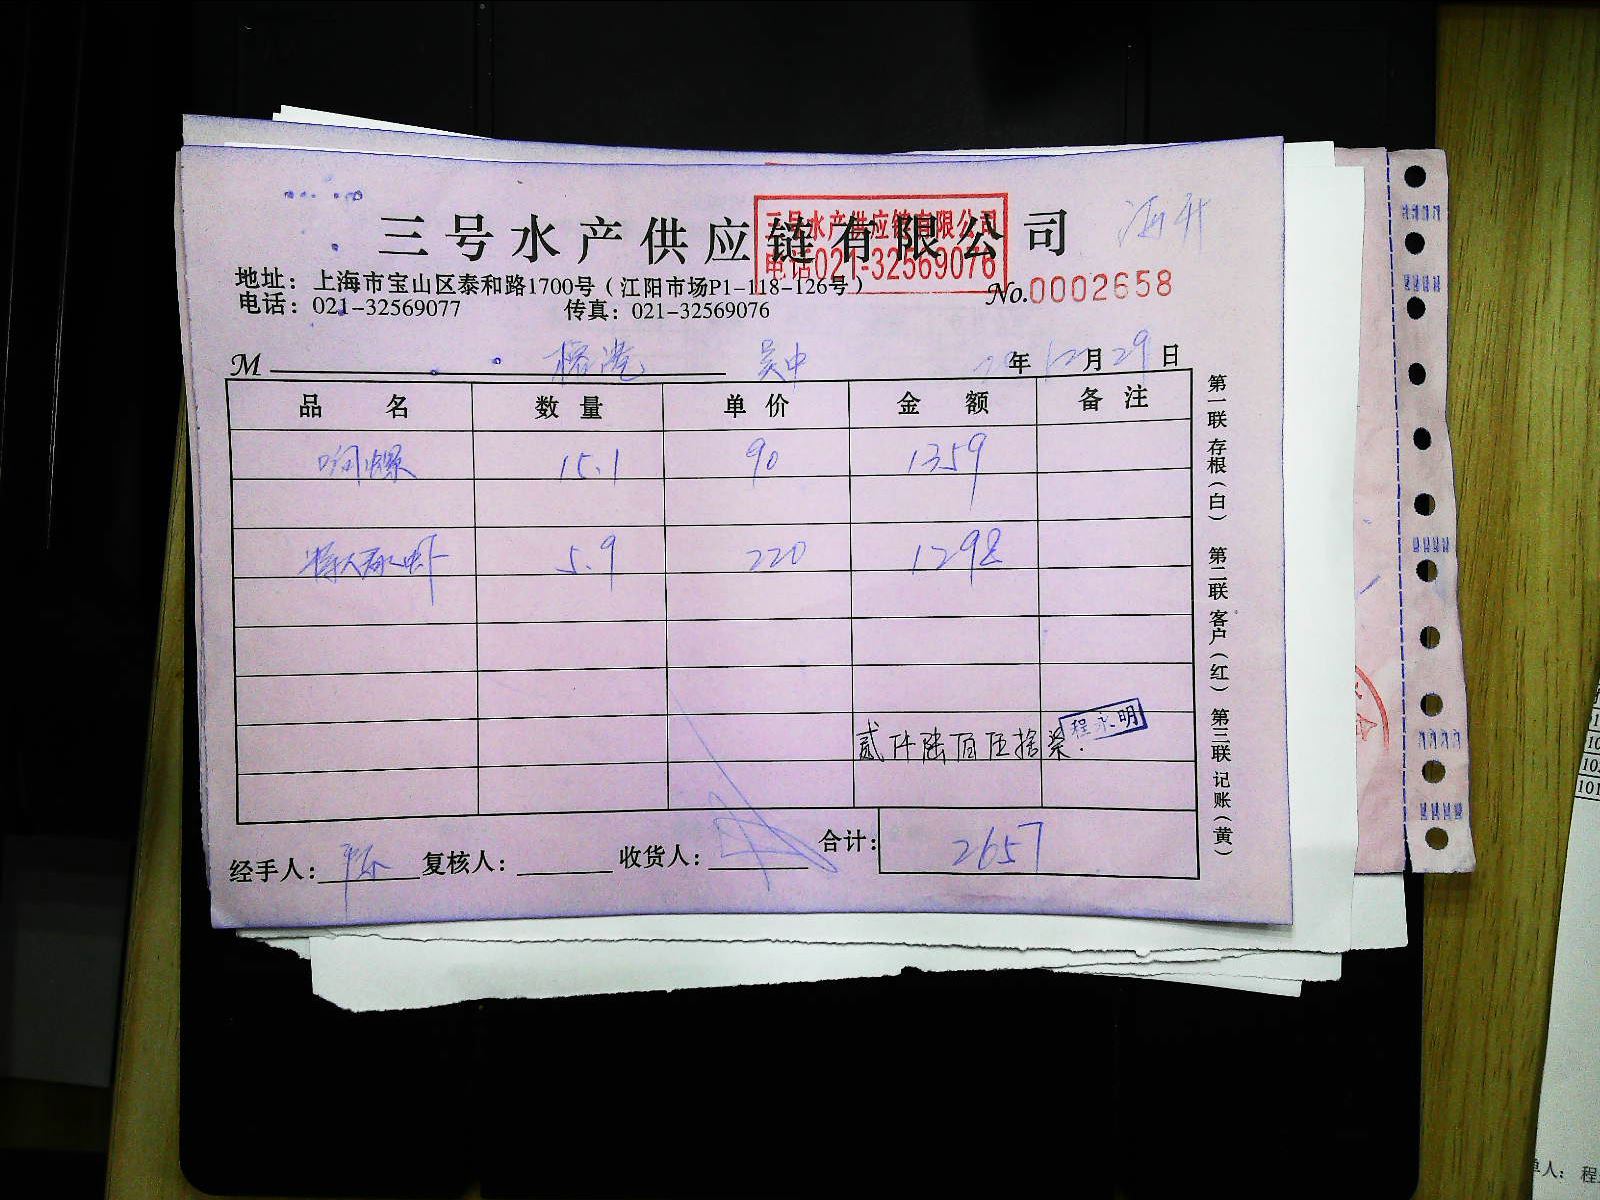 三号水产供应链有限公司
三号水产供应链有限公司
电话021-32569076
地址：上海市宝山区泰和路1700号（江阳市场P1-118-126号）
No.0002658
电话：021-32569077 传真：021-32569076
M 吴中 年12月29日
品名 数量 单价 金额 备注
响螺 15.1 90 1359
5.9 220 1298
贰仟陆佰伍拾柒.
程永明
合计：2657
经手人： 复核人： 收货人：
第一联 存根（白） 第二联 客户（红） 第三联 记账（黄）